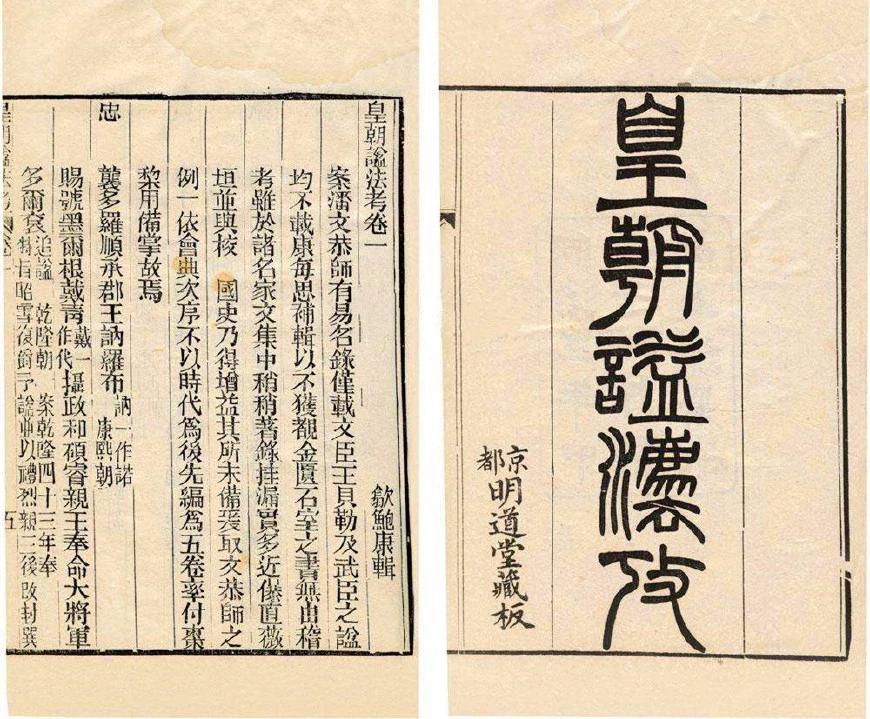 皇朝謚灋攷
京都
明道堂藏板
皇朝謚法考卷一
歙鮑康輯
案潘文恭師有易名錄僅載文臣王貝勒及武臣之謚
均不載康每思補輯以不獲覩金匱石室之書無由稽
考雖於諸名家文集中稍稍著錄挂漏實多近儤直薇
垣並與校 國史乃得增益其所未備爰取文恭師之
例一依會典次序不以時代爲後先編爲五卷率付棗
棃用備掌故焉
忠
襲多羅順承郡王訥羅布訥一作諾康熙朝
賜號墨爾根戴青戴一作代攝政和碩睿親王奉命大將軍
多爾袞追謚 乾隆朝 案乾隆四十三年奉
特旨昭雪復爵予謚並以禮烈親王後改封巽
皇朝謚法考
五